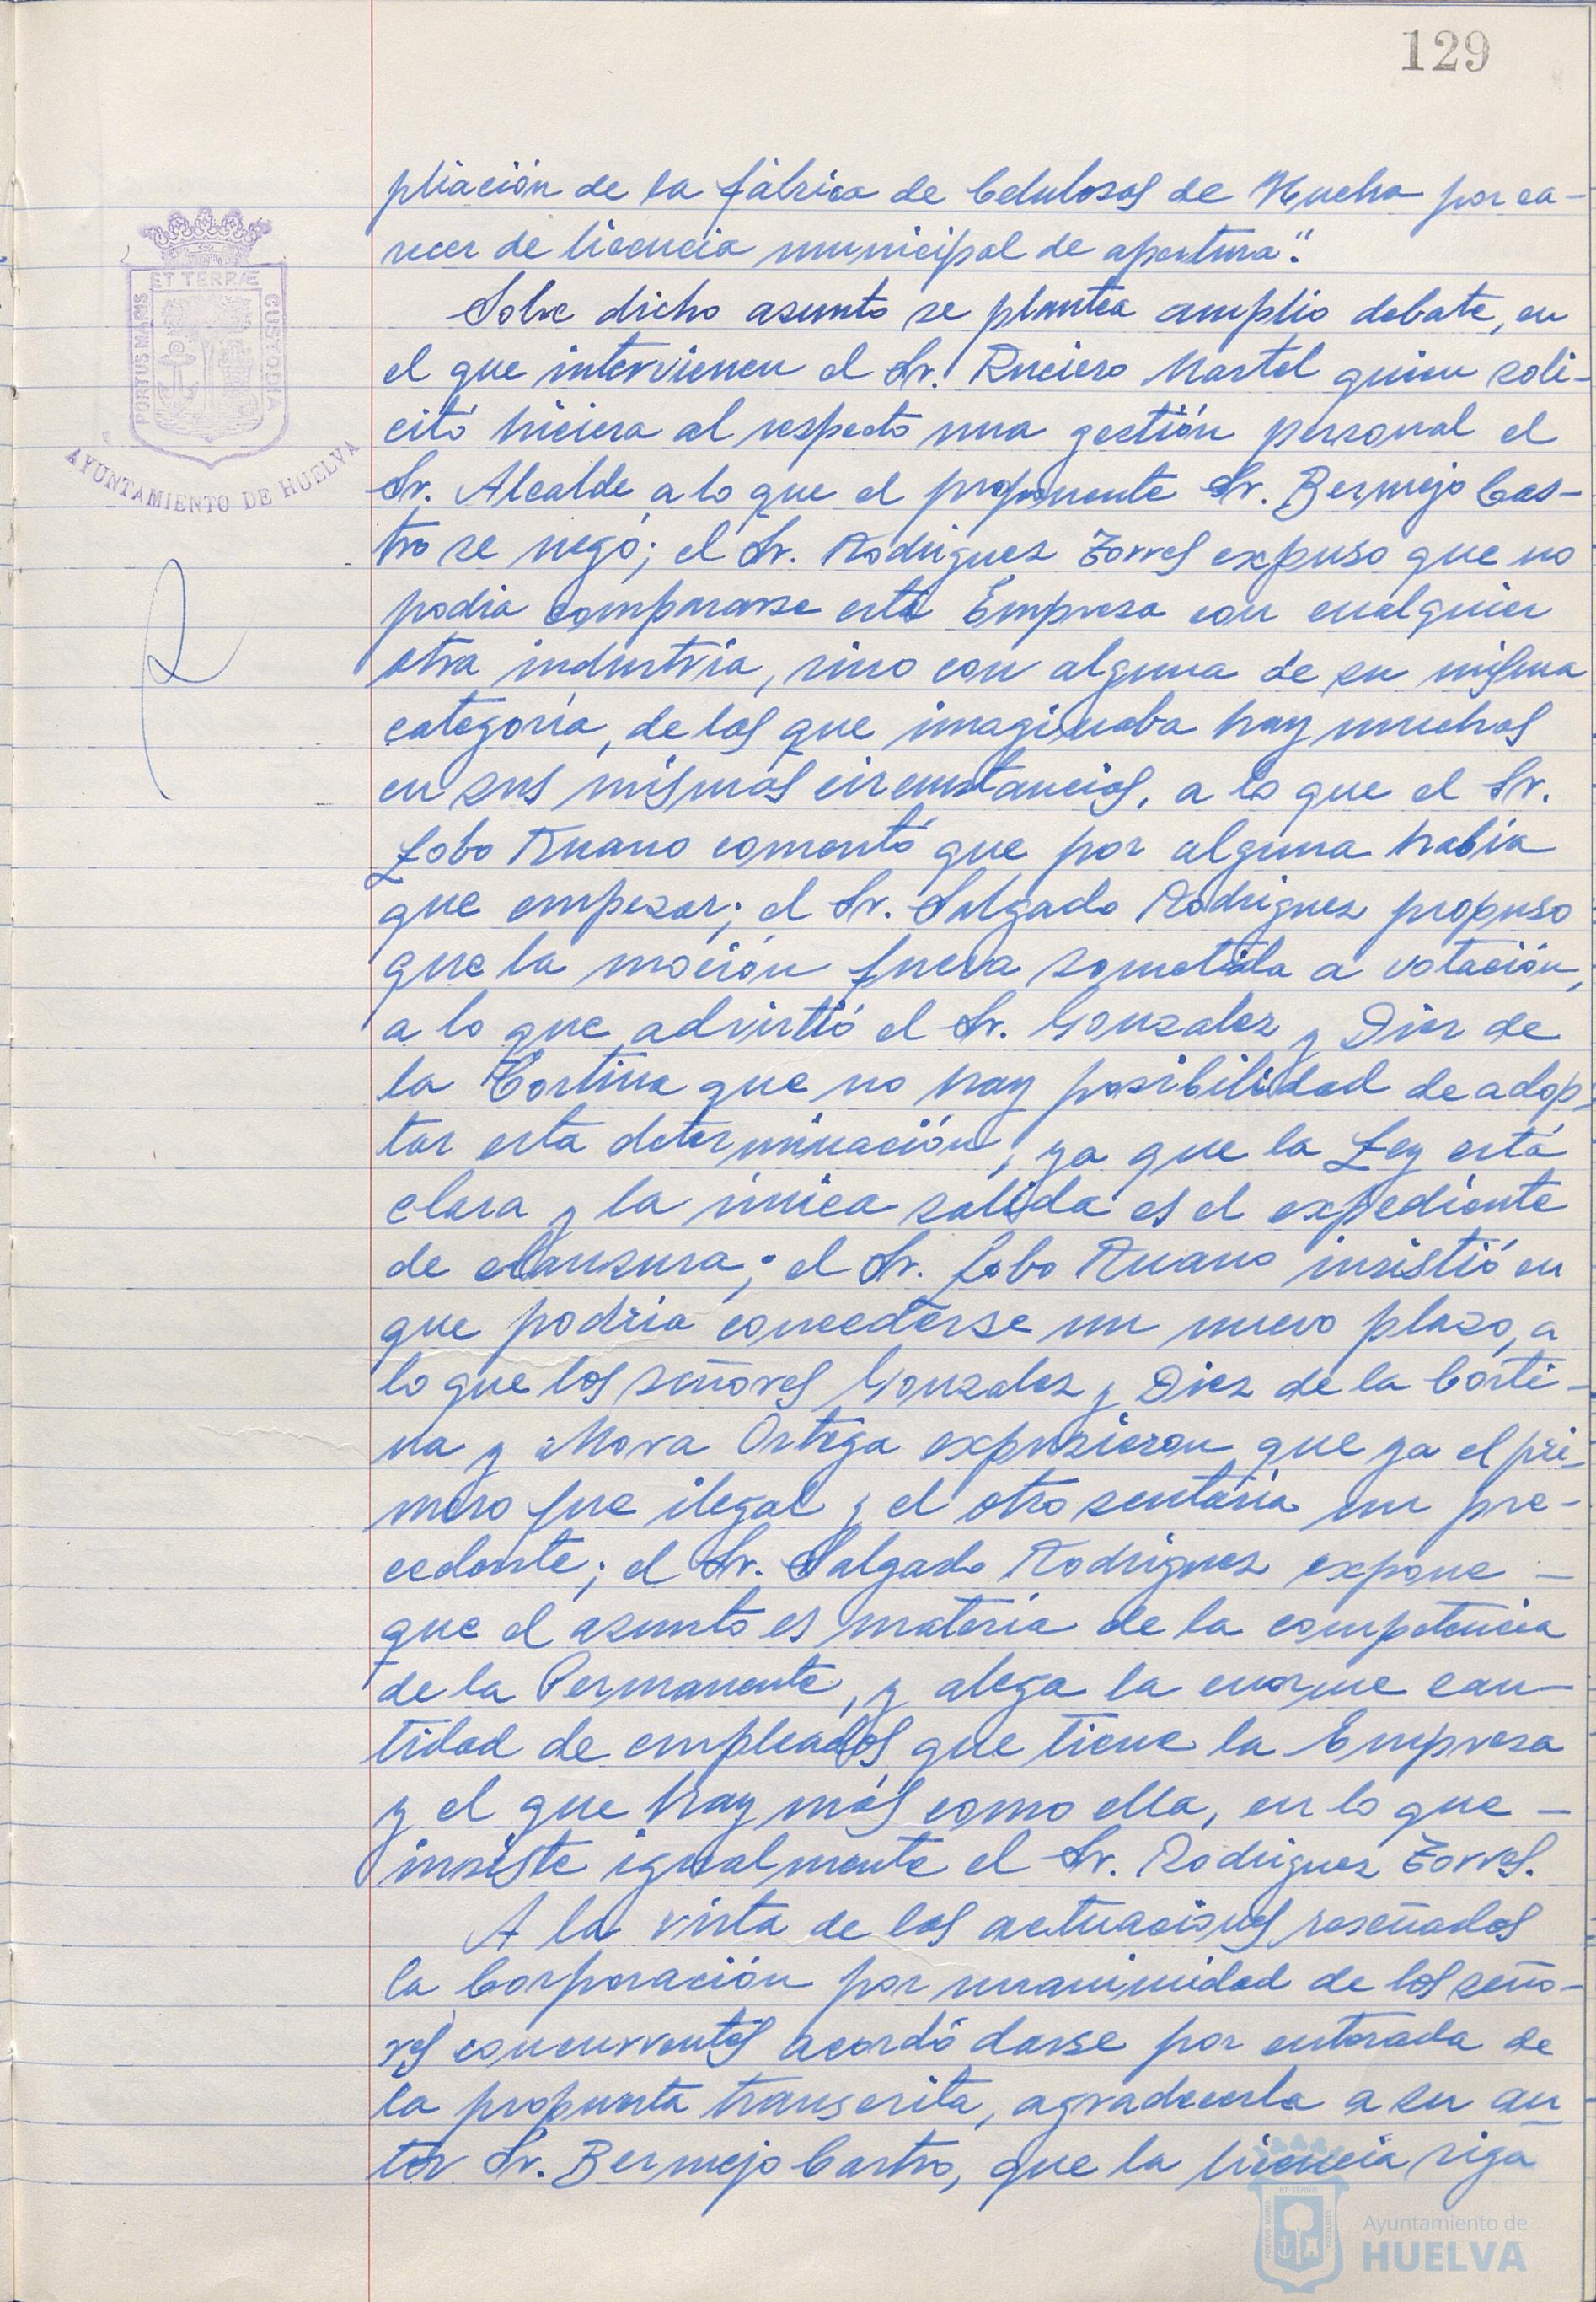 129
pliación de la fábrica de Celulosas de Huelva por ca-
recer de licencia municipal de apertura".
Sobre dicho asunto se plantea amplio debate, en
el que intervienen el Sr. Ruciero Martel quien soli-
citó hiciera al respecto una gestión personal el
Sr. Alcalde, a lo que el proponente Sr. Bermejo Cas-
tro se negó; el Sr. Rodríguez Torres expuso que no
podía compararse esta Empresa con cualquier
otra industria, sino con alguna de su misma
categoría, de las que imaginaba hay muchas
en sus mismas circunstancias, a lo que el Sr.
Lobo Ruano comentó que por alguna había
que empezar; el Sr. Salgado Rodriguez propuso
que la moción fuera sometida a votación,
a lo que advirtió el Sr. Gonzalez y Diez de
la Cortina que no hay posibilidad de adop-
tar esta determinación, ya que la Ley está
clara y la única salida es el expediente
de clausura; el Sr. Lobo Ruano insistió en
que podría concederse un nuevo plazo, a
lo que los señores Gonzalez y Diez de la Corti-
na y Mora Ortega expusieron que ya el pri-
mero fue ilegal y el otro sentaría un pre-
cedente; el Sr. Salgado Rodriguez expone -
que el asunto es materia de la competencia
de la Permanente, y alega la enorme can-
tidad de empleados que tiene la Empresa
y el que hay más como ella, en lo que -
insiste igualmente el Sr. Rodriguez Torres.
A la vista de las actuaciones reseñadas
la Corporación por unanimidad de los seño-
res concurrentes acordó darse por enterada de
la propuesta transcrita, agradecerla a su au-
tor Sr. Bermejo Castro, que la licencia siga
PORTUS MARIS
ET TERRÆ
CUSTODIA
AYUNTAMIENTO DE HUELVA
Ayuntamiento de
HUELVA